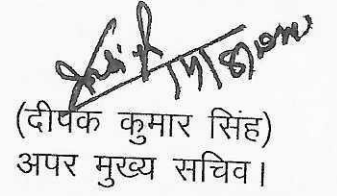 (दीपक कुमार सिंह)
अपर मुख्य सचिव।